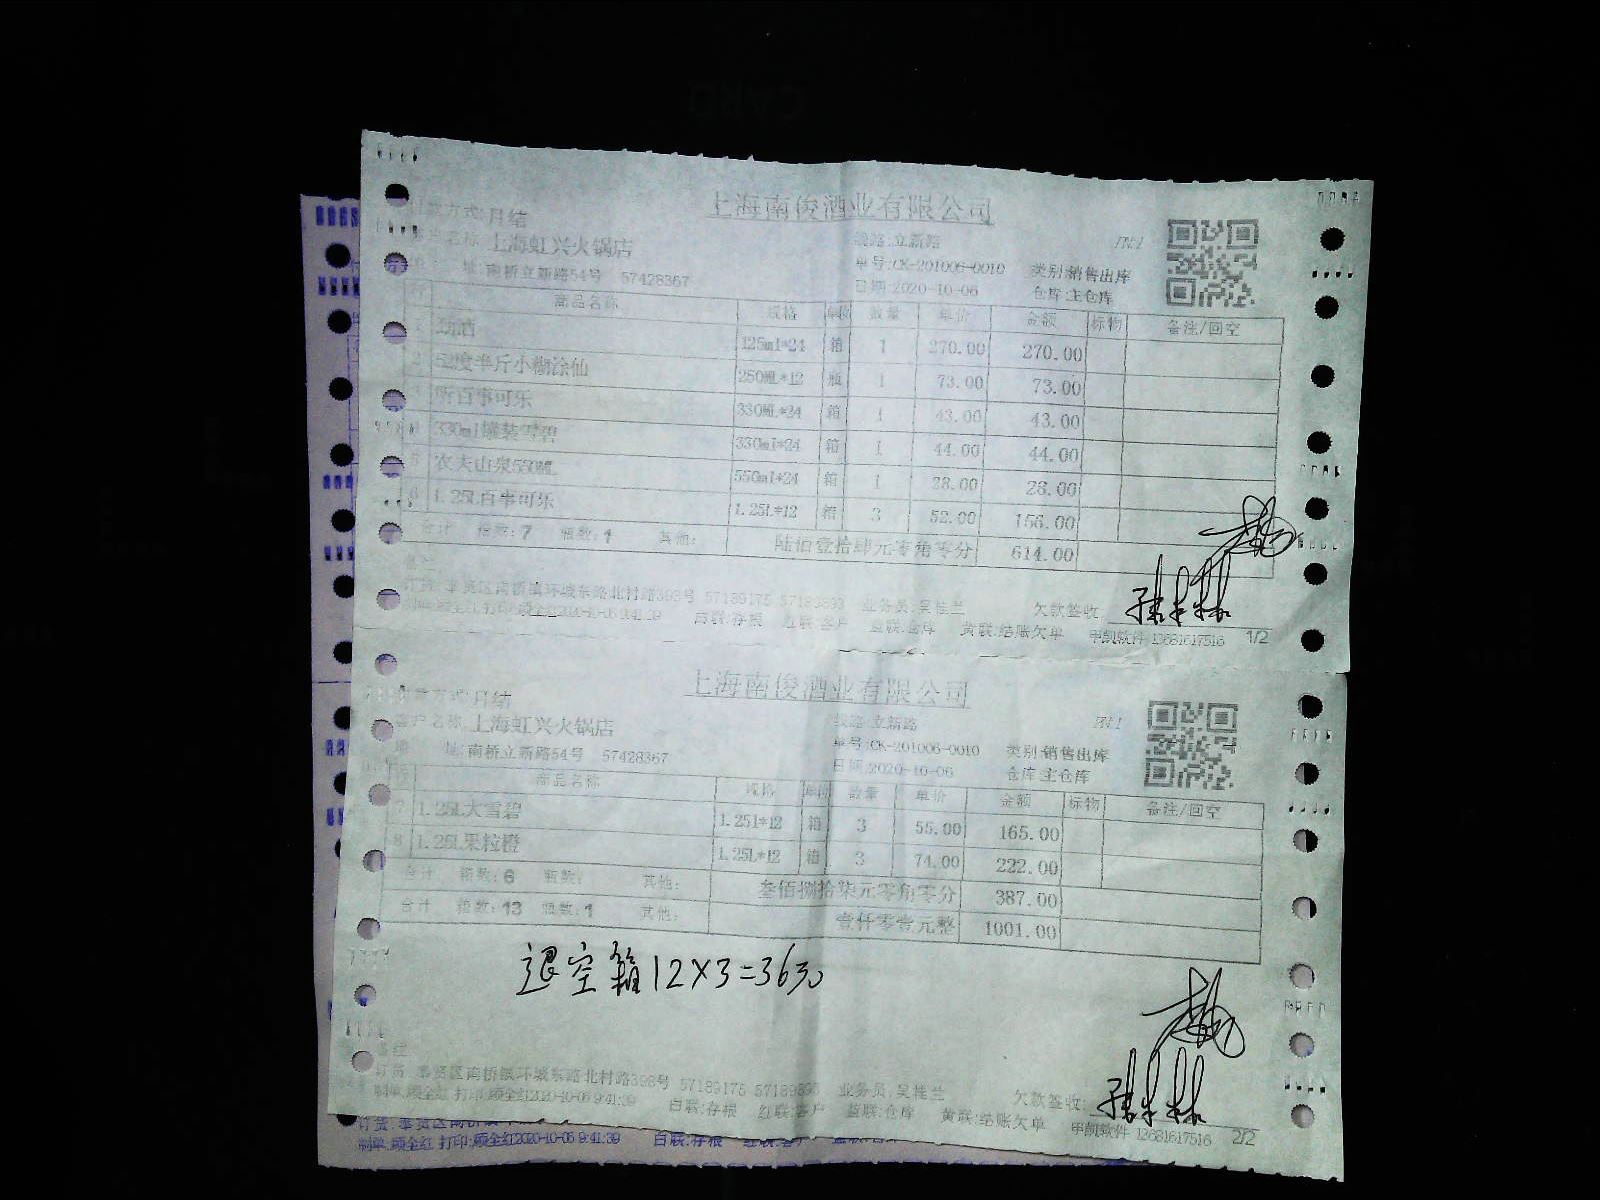 上海南俊酒业有限公司
付款方式:月结 线路:立新路 PN:1
客户名称:上海虹兴火锅店 单号:CK-201006-0010 类别:销售出库
地 址:南桥立新路54号 57428367 日期:2020-10-06 仓库:主仓库
行 商品名称 规格 单位 数量 单价 金额 标物 备注/回空
1 劲酒 125ml*24 箱 1 270.00 270.00
2 52度半斤小糊涂仙 250ML*12 瓶 1 73.00 73.00
3 听百事可乐 330ML*24 箱 1 43.00 43.00
4 330ml罐装雪碧 330ml*24 箱 1 44.00 44.00
5 农夫山泉550ML 550ml*24 箱 1 28.00 28.00
6 1.25L百事可乐 1.25L*12 箱 3 52.00 156.00
合计 箱数:7 瓶数:1 其他: 陆佰壹拾肆元零角零分 614.00
备注:
订货:奉贤区南桥镇环城东路北村路398号 57189175 57189895 业务员:吴桂兰 欠款签收:
制单:顾全红 打印:顾全红2020-10-06 9:41:39 白联:存根 红联:客户 蓝联:仓库 黄联:结账欠单 申凯软件 13681617516 1/2
上海南俊酒业有限公司
付款方式:月结 线路:立新路 PN:1
客户名称:上海虹兴火锅店 单号:CK-201006-0010 类别:销售出库
地 址:南桥立新路54号 57428367 日期:2020-10-06 仓库:主仓库
行 商品名称 规格 单位 数量 单价 金额 标物 备注/回空
7 1.25L大雪碧 1.25l*12 箱 3 55.00 165.00
8 1.25L果粒橙 1.25L*12 箱 3 74.00 222.00
合计 箱数:6 瓶数: 其他: 叁佰捌拾柒元零角零分 387.00
合计 箱数:13 瓶数:1 其他: 壹仟零壹元整 1001.00
退空箱12×3=36元
备注:
订货:奉贤区南桥镇环城东路北村路398号 57189175 57189895 业务员:吴桂兰 欠款签收:
制单:顾全红 打印:顾全红2020-10-06 9:41:39 白联:存根 红联:客户 蓝联:仓库 黄联:结账欠单 申凯软件 13681617516 2/2
订货:奉贤区南桥
制单:顾全红 打印:顾全红2020-10-06 9:41:39 白联:存根